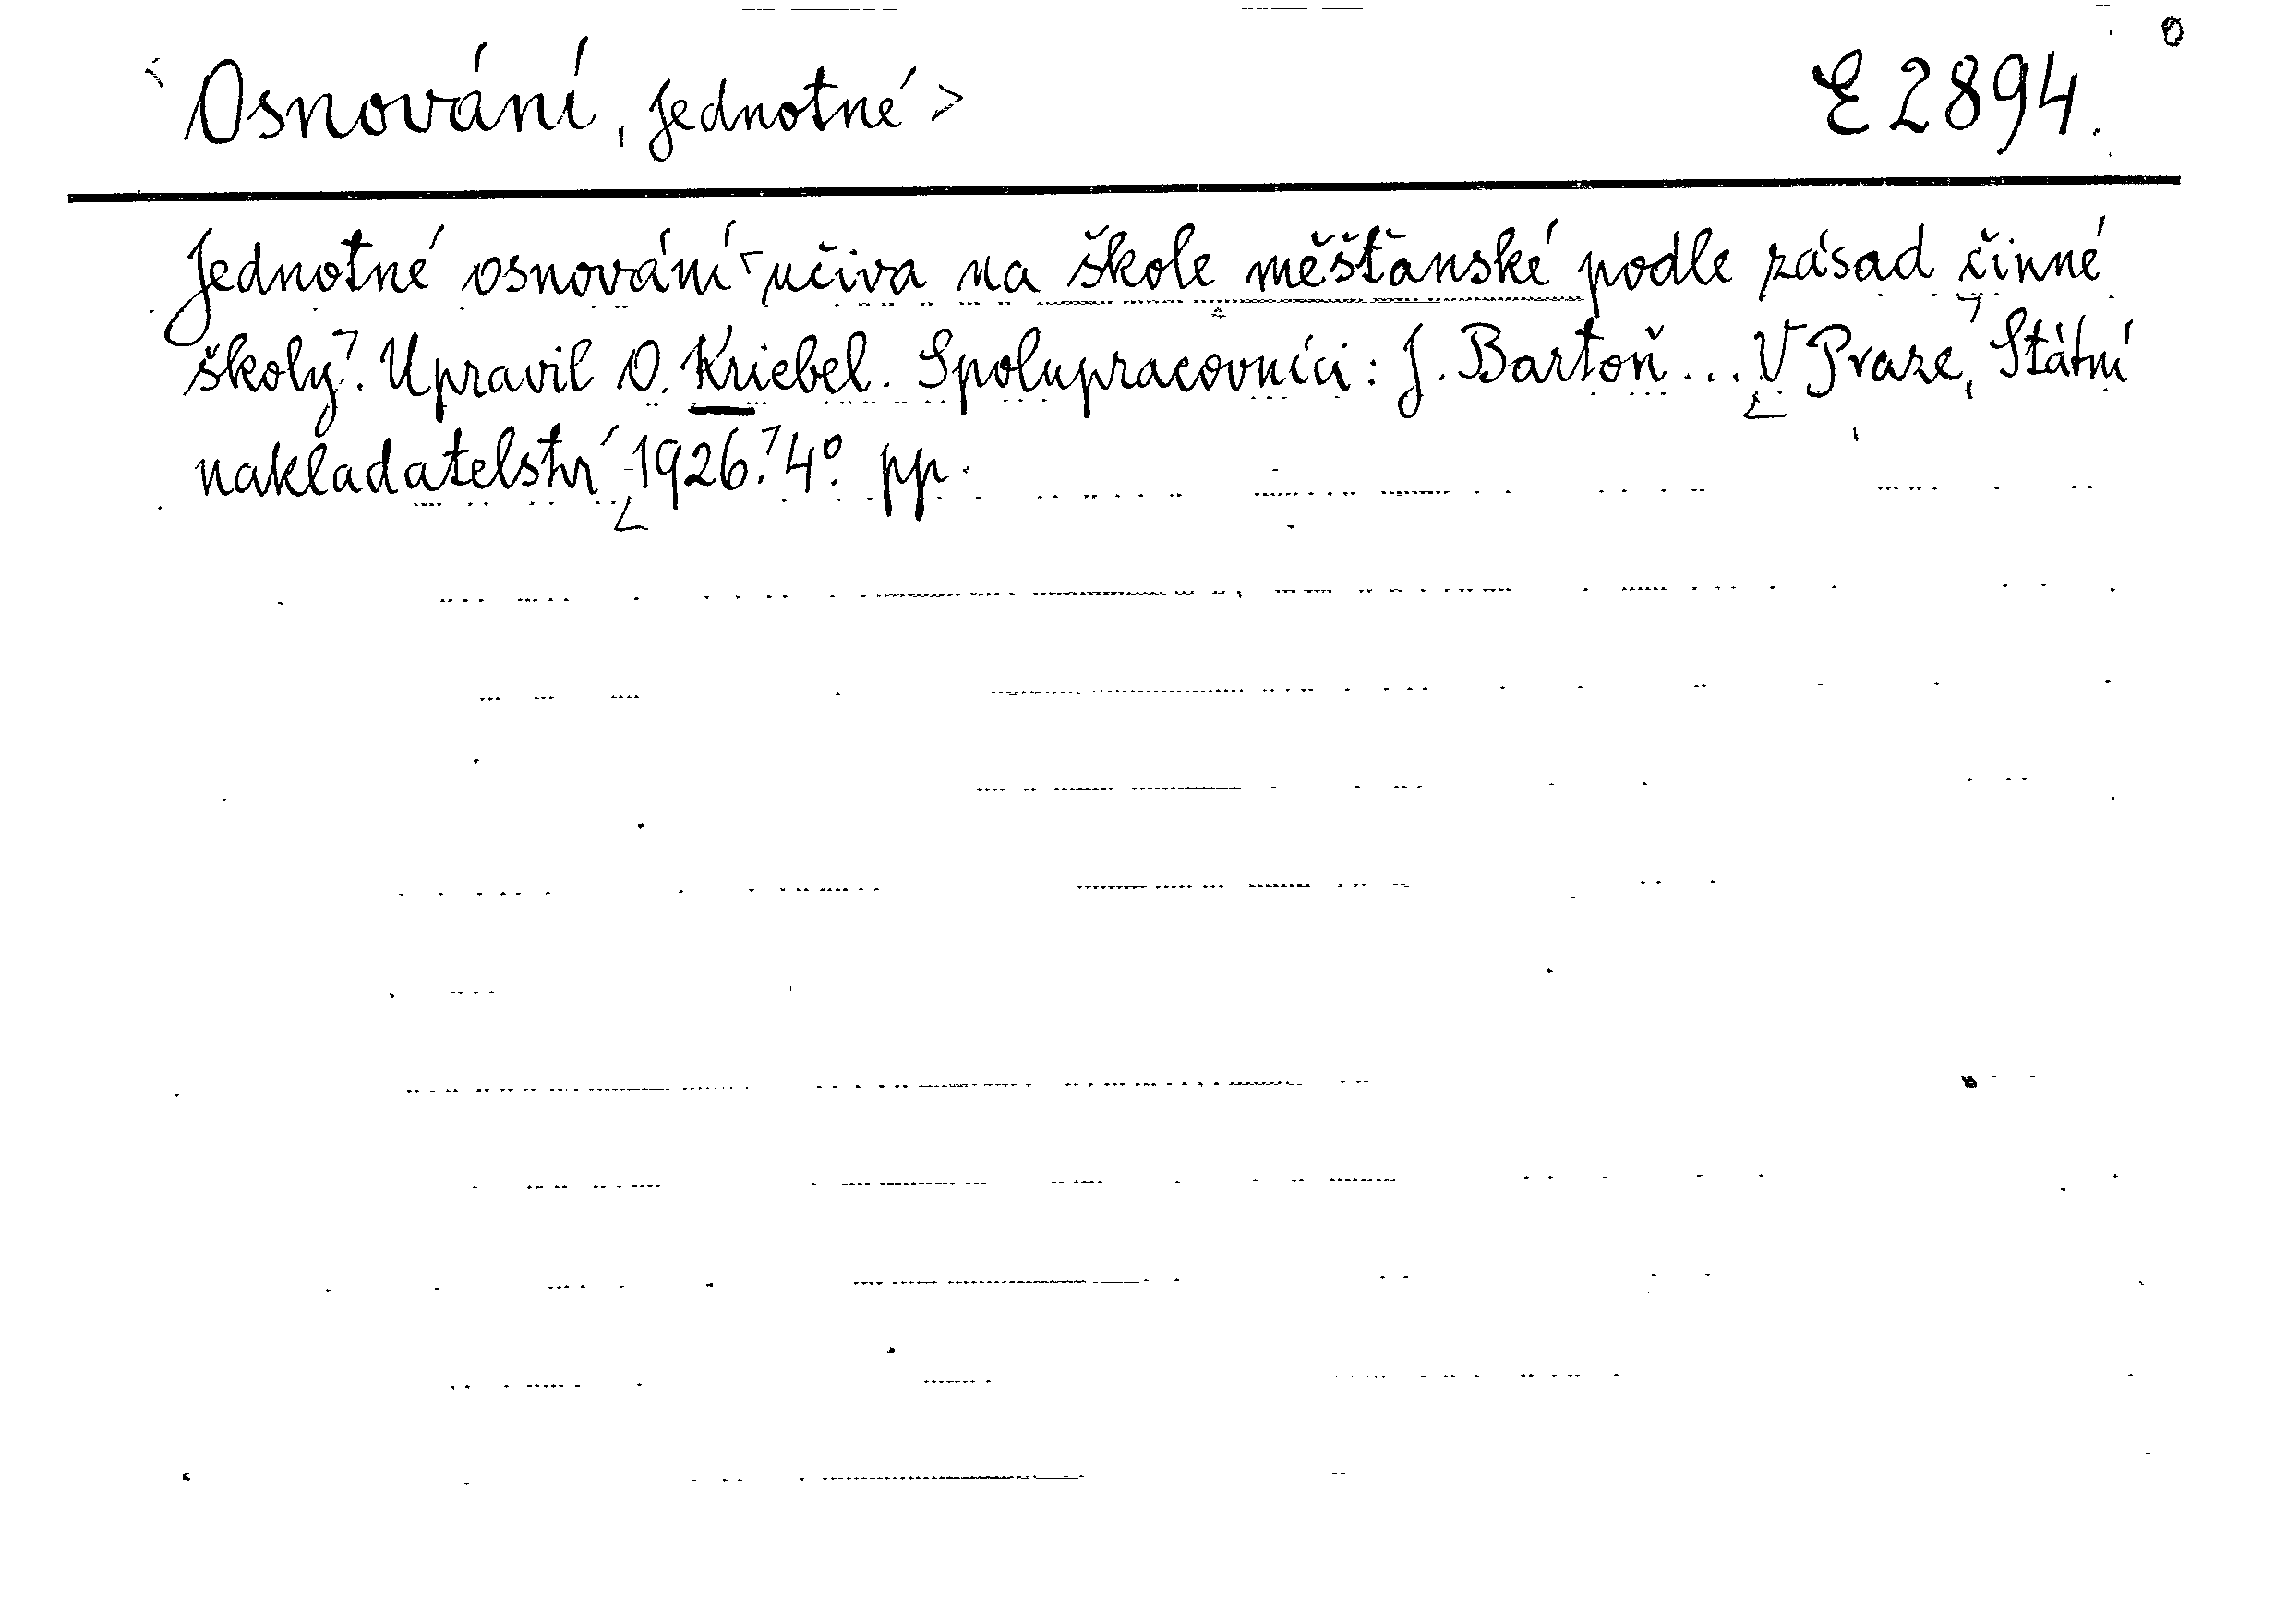 Osnování, Jednotné > E 2894.
Jednotné osnování učiva na škole měšťanské podle zásad činné
školy. Upravil O. Kriebel. Spolupracovníci: J. Bartoň... V Praze, Státní
nakladatelství 1926. 4°. pp.